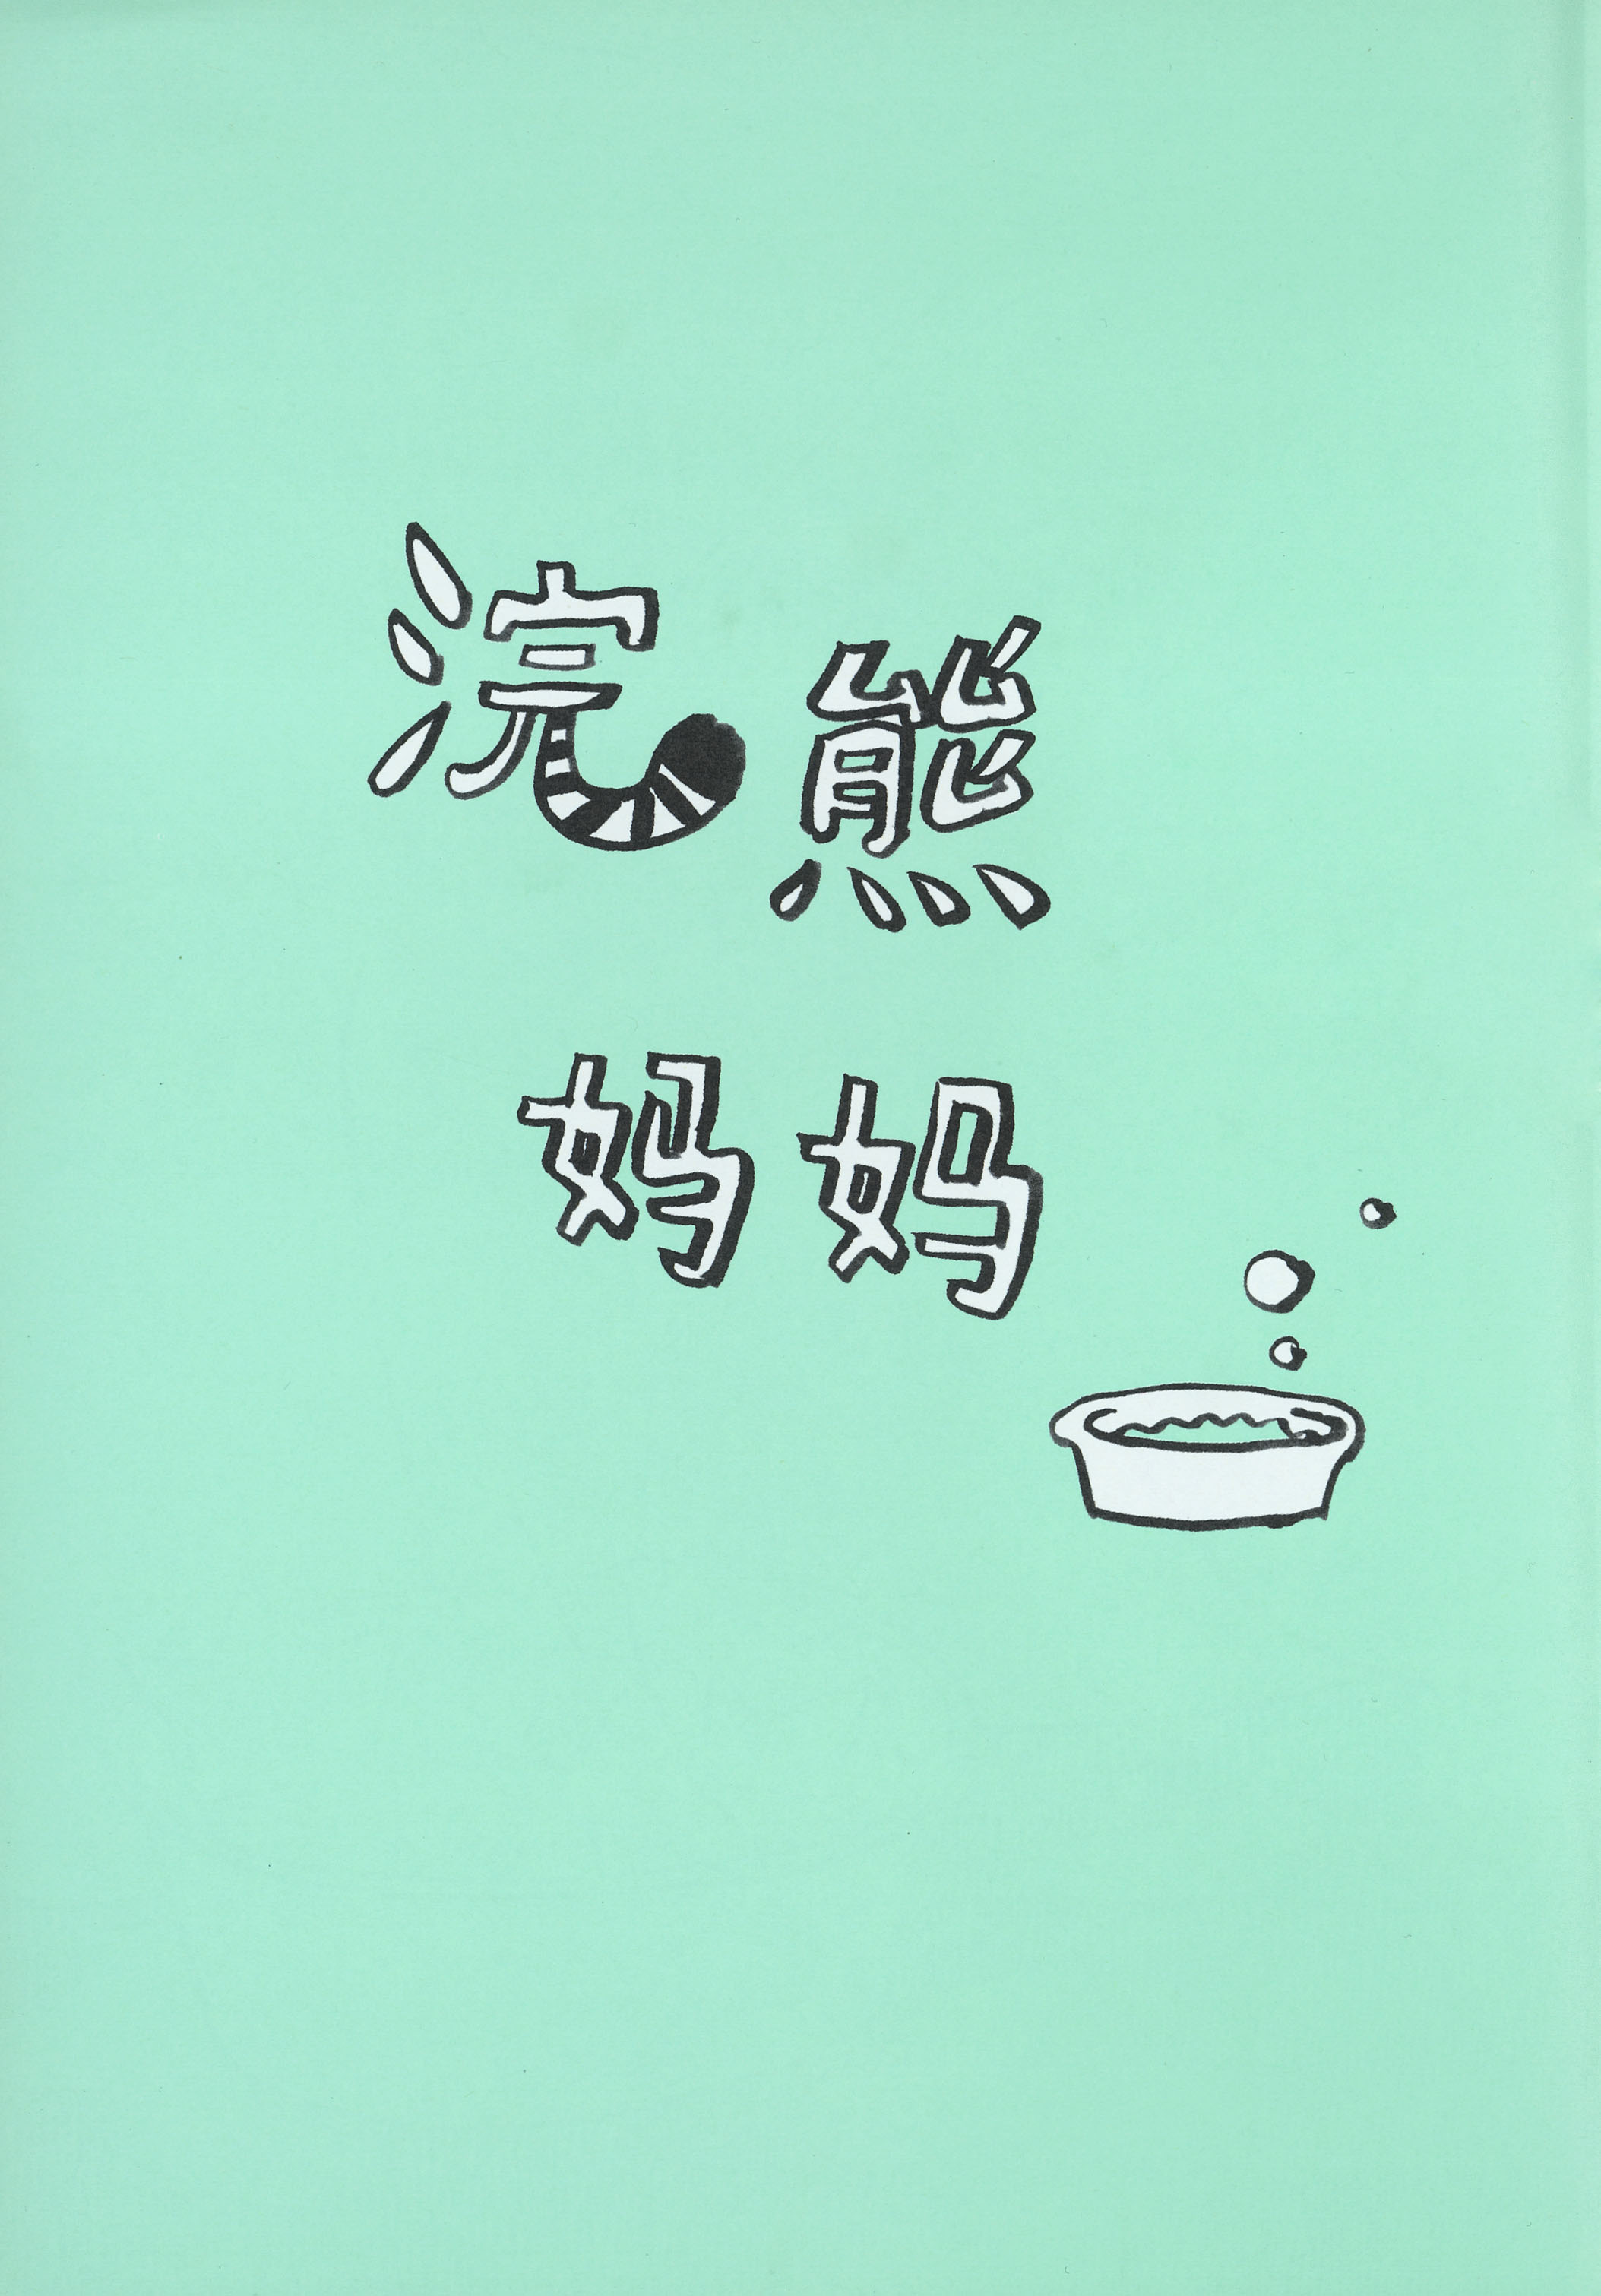 浣熊
妈妈